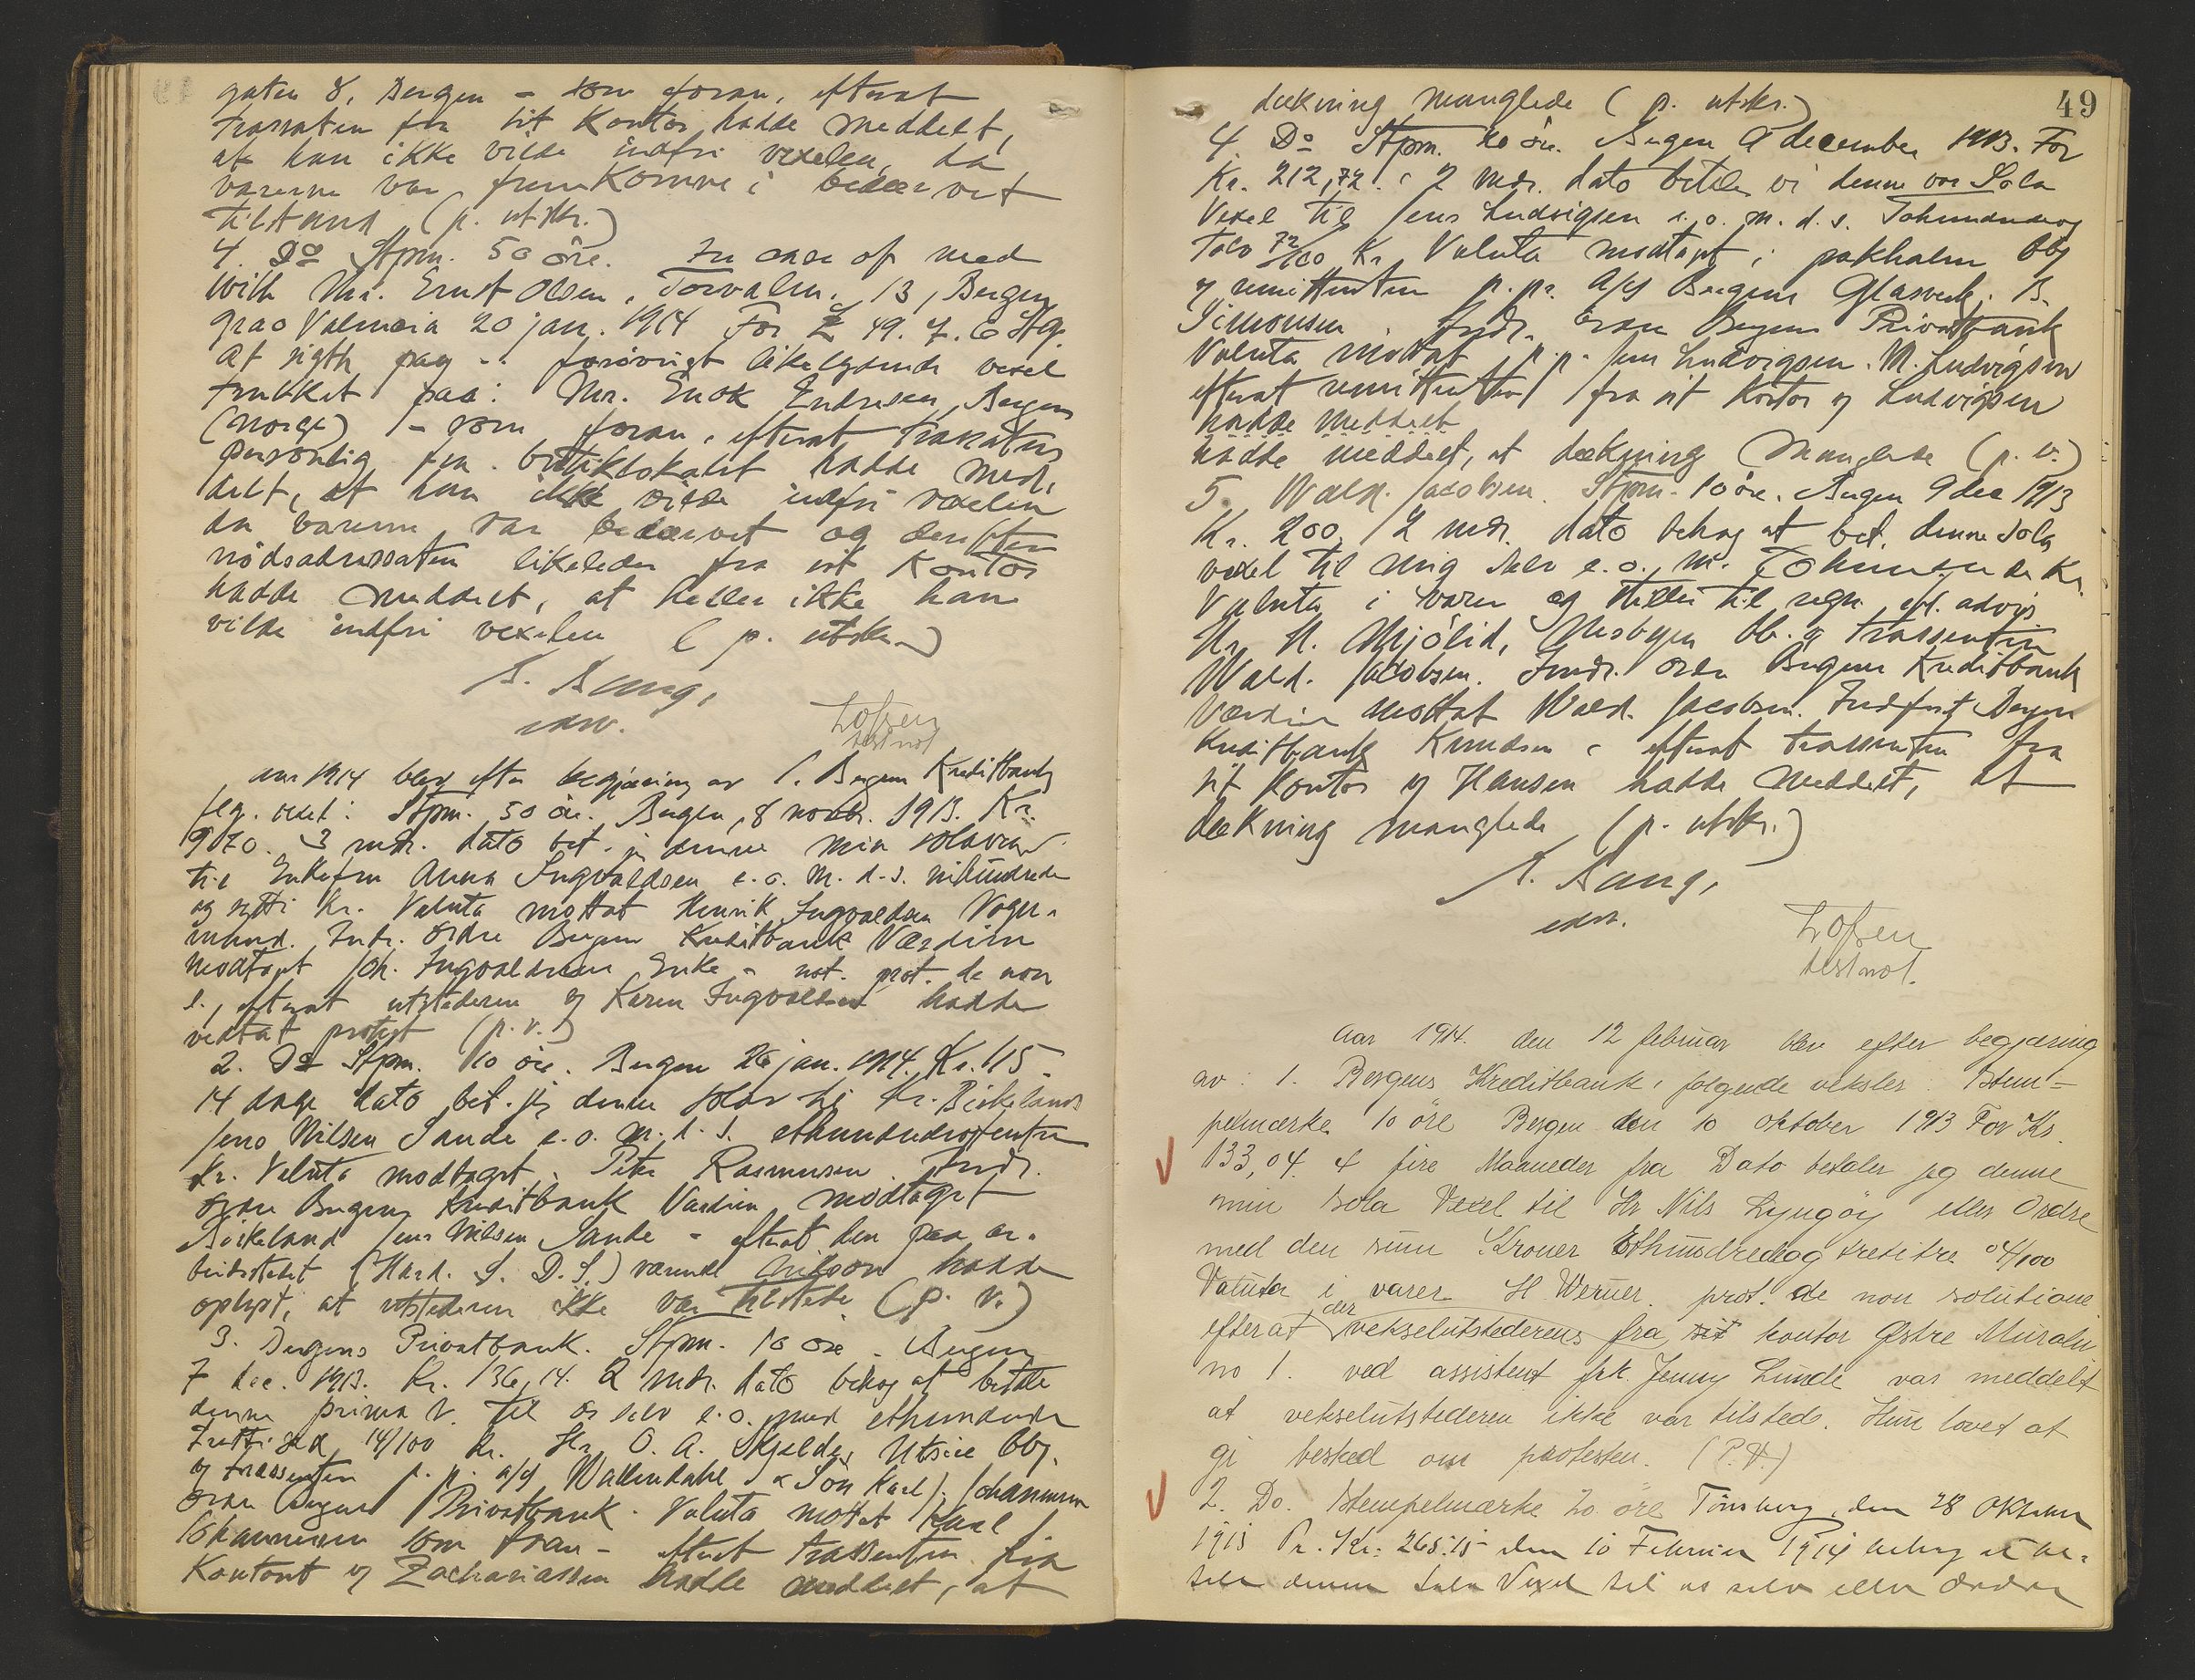 gaten 8, Bergen - som foran, efterat
trassaten fra sit Kontor hadde meddelt,
at han ikke vilde indfri vexelen, da
varerne var fremkomne i bedærvet
tilstand (p. utskr.)
4. Do Stpm. 50 öre. In case of need
with Mr. Ernst Olsen, Torvalm. 13, Bergen
grao Valencia 20 jan. 1914 For £ 49. 7. 6 Stg.
At sigth pay - forövrigt likelydende vexel
trukket paa: Mr. Enok Endresen, Bergen
(Norge) - som foran, efterat trassaten
personlig fra butiklokalet hadde med-
delt, at han ikke vilde indfri vexelen
da varerne var bedærvet og derefter
nödsadressaten likeledes fra sit Kontor
hadde meddelt, at heller ikke han
vilde indfri vexelen (p. utskr.)
Lofzen
test not
aar 1914 blev efter begjæring av 1. Bergens Kreditbank
flg. vexel: Stpm. 50 öre. Bergen, 8 novbr. 1913. Kr.
970. 3 mdr. dato bet. jeg denne min solavex
til Enkefru Anna Ingvaldsen e. o. m. d. s. nihundrede
og sytti Kr. Valuta mottat Henrik Ingvaldsen
Indr. Ordre Bergens Kreditbank Værdien
modtaget Joh. Ingvaldsens Enke - not. prot. de non
s., efterat utstederen og Karen Ingvaldsen hadde
vedtat protest (p. v.)
2. Do Stpm. 10 öre. Bergen 26 jan. 1914. Kr. 115.
14 dage dato bet. jeg denne solav til Hr. Birkeland
Jens Nilsen Sande e. o. m. d. s. ethundredrofemten
Kr. Valuta modtaget. Peter Rasmussen. Indr.
ordre Bergens Kreditbank Værdien modtaget
Birkeland Jens Nilsen Sande - efterat den paa ar-
beidsstedet (Hard. S. D. S.) værende hadde
oplyst, at utstederen ikke var tilstede (p. v.)
3. Bergens Privatbank. Stpm. 10 öre. Bergen
7 dec. 1913. Kr. 136,14. 2 mdr. dato behag at betale
denne prima v. til os selv e. o. med ethundrede
trettisex 14/100 kr. Hr. O. A. Skjelde, Utsire bbg.
og trassenten p. p. a/s Wallendahl & Sön Karl J. Johannessen
ordre Bergens Privatbank. Valuta mottat Karl J.
Johannessen som foran - efterat trassenten fra
Kontoret og Zachariassen hadde meddelt, at
49
dækning manglede (p. utskr.)
4. Do Stpm. 20 öre. Bergen 9 december 1913. For
Kr. 212,72. 2 mdr. dato betaler vi denne vor Sola
Vexel til Jens Ludvigsen e. o. m. d. s. Tohundredeog
Tolv 72/100 Kr. Valuta modtaget i pakhalm bbg
og remittenten p. pr. A/S Bergens Glasverk. B.
Simonsen. Indr. ordre Bergens Privatbank
Valuta mottat p. p. Jens Ludvigsen. M. Ludvigsen
efterat remittenten fra sit Kontor og Ludvigsen
hadde meddelt
hadde meddelt, at dækning manglede (p. v.)
5. Wald. Jacobsen. Stpm. 10 öre. Bergen 9 dec 1913
Kr. 200. 2 mdr. dato behag at bet. denne sola
vexel til mig selv e. o. m. Tohundrede Kr.
Valuta i varer og stilles til regn. efl. advis
Hr. H. Mjölid, Nesbyen bb. og trassenten
Wald. Jacobsen. Indr. ordre Bergens Kreditbank
Værdien mottat Wald. Jacobsen. Indfrit Bergens
Kreditbank Knudsen, efterat trassenten fra
sit Kontor og Hansen hadde meddelt, at
dækning manglede (p. utskr.)
Lofzen
test not.
Aar 1914. den 12 februar blev efter begjæring
av: 1. Bergens Kreditbank, følgende veksler Stem=
pelmærke 10 öre Bergen den 10 oktober 1913 For Kr.
133,04. 4 fire Maaneder fra Dato betaler jeg denne
min Sola Vexel til Hr Nils Lyngöy eller Ordre
med den sum Kroner Ethundredeog tretitre 04/100
Valuta i varer H. Werner. prot. de non solutione
efterat der vekselutstederens fra sit kontor Østre Muralm
no 1. ved assistent frk. Jenny Lunde var meddelt
at vekselutstederen ikke var tilstede. Hun lovet at
gi besked om protesten. (P.V.)
2. Do. Stempelmærke 20 öre Tönsberg, den 28 Oktober
1913 Pr. Kr. 265.15 den 10 Februar 1914 behag at be-
tale denne Sola Vexel til os selv eller Ordre